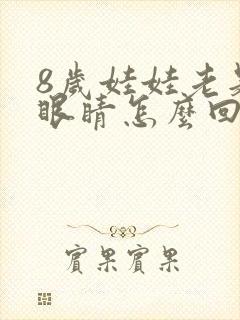 8歲娃娃老是
眼睛怎麼回
賓果賓果